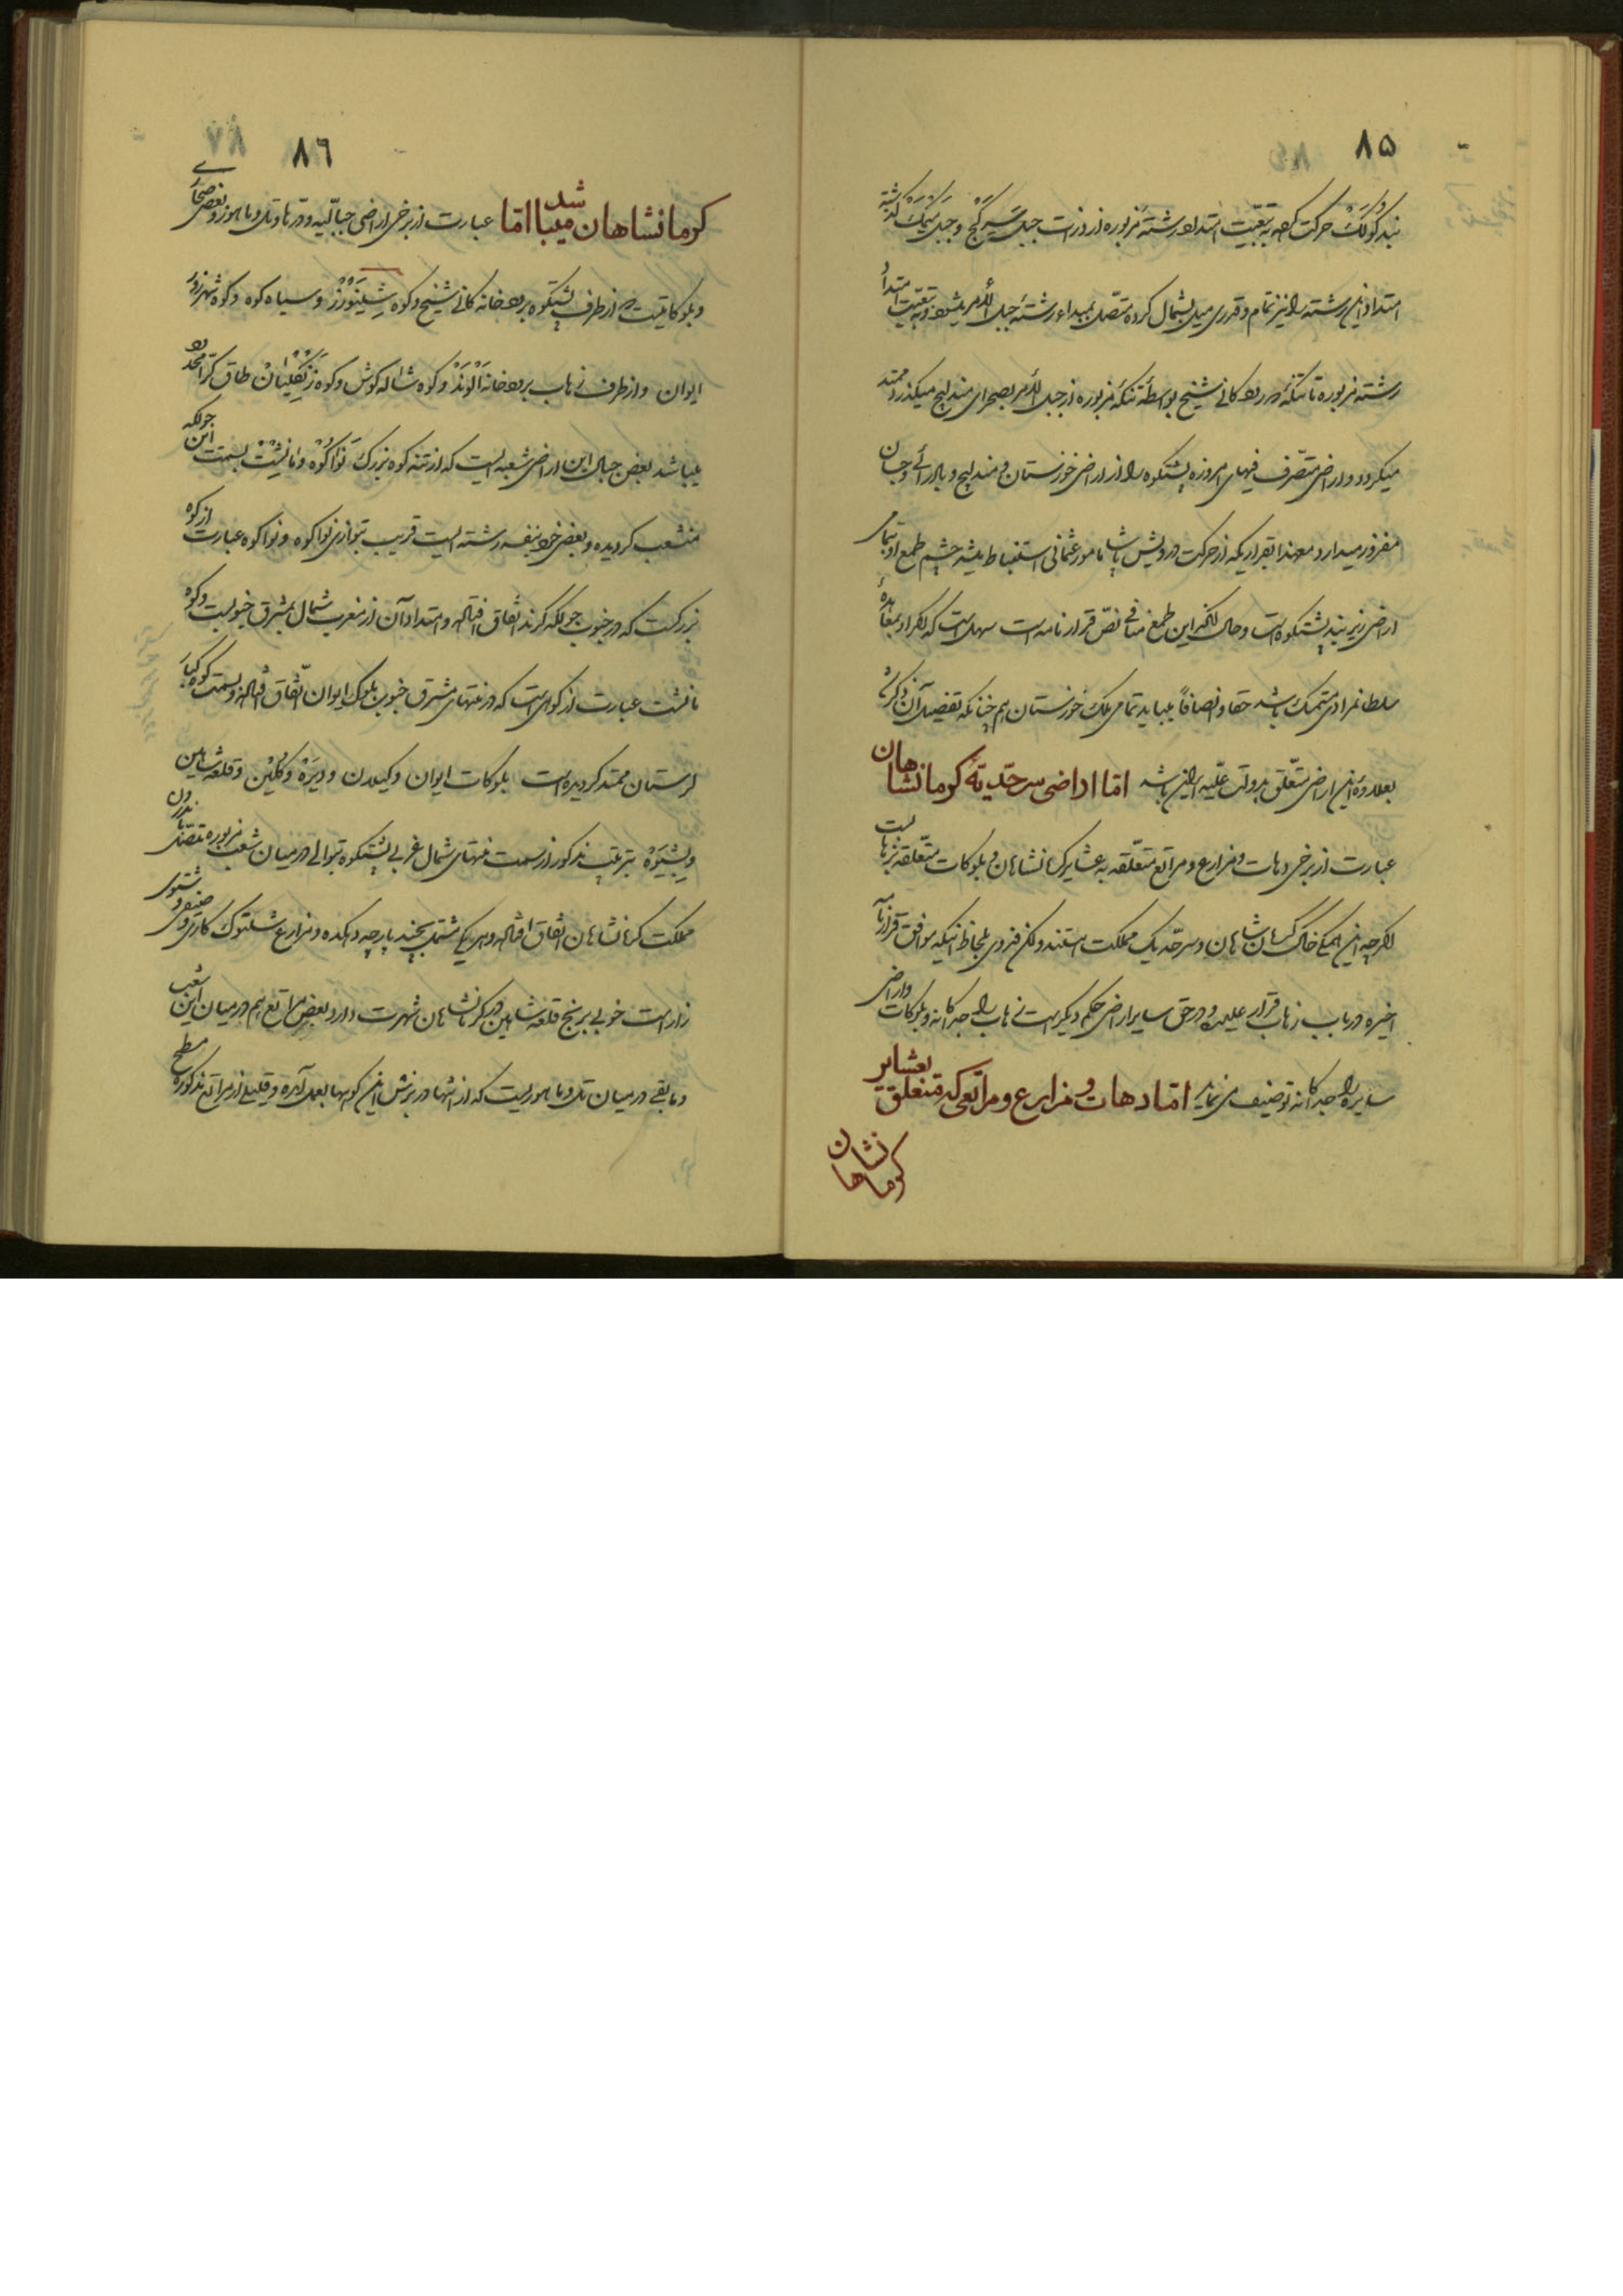 ۸۵
حرکت کرده به تبعیّت امتداد رشتهٔ مزبوره از وزات جبل
امتداد این رشته را نیز تمام و قدری میل بشمال کرده متّصل بمبداء رشته جبل
رشته مزبوره تا تنکهٔ رود کانی شیخ بواسطهٔ تنکهٔ مزبوره از جبل بصحرای مندلیج میکذرد ممتد
میکردد و اراضی متصرف فیهای امروزه پشتکوه را از اراضی خوزستان و مندلیج و بادرائی و جسان
مفروز میدارد معهذا بقراریکه از حرکت درویش پاشا مامور عثمانی استنباط میشد چشم طمع او بتمامی
اراضی زیر بند پشتکوه است و حال آنکه این طمع منافی نصّ قرارنامه است سهل است که اگر از معاهدهٔ
سلطانمرادی متمسّک باشد حقاً و انصافاً میباید تمامی ملک خوزستان هم چنانکه تفصیل آن ذکر شد
بعلاوهٔ این اراضی متعلّق بدولت علیّه ایران باشد امّا اراضی سرحدّیهٔ کرمانشاهان
عبارت از برخی دهات و مزارع و مراتع متعلّقه به عشایر کرمانشاهان و بلوکات متعلّقه بزهابست
اگرچه این همکی خاک کرمانشاهان و سرحدّ یک مملکت هستند ولکن فدوی بلحاظ اینکه موافق قرارنامه
اخیره در باب زهاب قرار علیحده و در حق سایر اراضی حکم دیگر است زهاب را جداکانه و بلوکات و اراضی
سایره را جداکانه توصیف می نماید امّا دهات و مزارع و مراتعی که متعلّق بعشایر
کرمانشاهان
۸۶
کرمانشاهان میباشد امّا عبارت از برخی اراضی جبالیّه و درّها و تل و ماهور و بعضی صحاری
و بلوکاتیست که از طرف پشتکوه برودخانه کانی شیخ و کوه و سیاه کوه و کوه
ایوان و از طرف زهاب برودخانه اَلوَنْد و کوه شاله کوش و کوه طاق کرّا محدود
میباشد بعض جبال این اراضی شعبه ایست که از تنه کوه بزرک نَواکُوْه و مانِشْت بسمت این جولکه
منشعب کردیده و بعضی خود بنفسه رشته ایست قریب بتوازی نواکوه و نواکوه عبارت از کوه
بزرکیست که در جنوب جولکه کرند اتّفاق افتاده و امتداد آن از مغرب شمال بمشرق جنوبیست و کوه
مانشت عبارت از کوهی است که در منتهای مشرق جنوب بلوک ایوان اتّفاق افتاده و بسمت کوه
لرستان ممتد کردیده است بلوکات ایوان و کیلان و دیرَهْ و کُلّین و قلعه شاهین
و بِشیوَهْ بترتیب مذکور از سمت منتهای شمال غربی پشتکوه بتوالی در میان شعب مزبوره
مملکت کرمانشاهان اتّفاق افتاده و هریکی مشتمل بچند پارچه دهکده و مزارع شلتوک کاری و صیفی و شتوی
زار است خوبی برنج قلعه شاهین در کرمانشاهان شهرت دارد بعض مراتع هم در میان این شعب
و مابقی در میان تل و ماهوریست که از انتهاء ریزش این کوهها بعمل آمده و قلیلی از مراتع مذکوره مسطّح